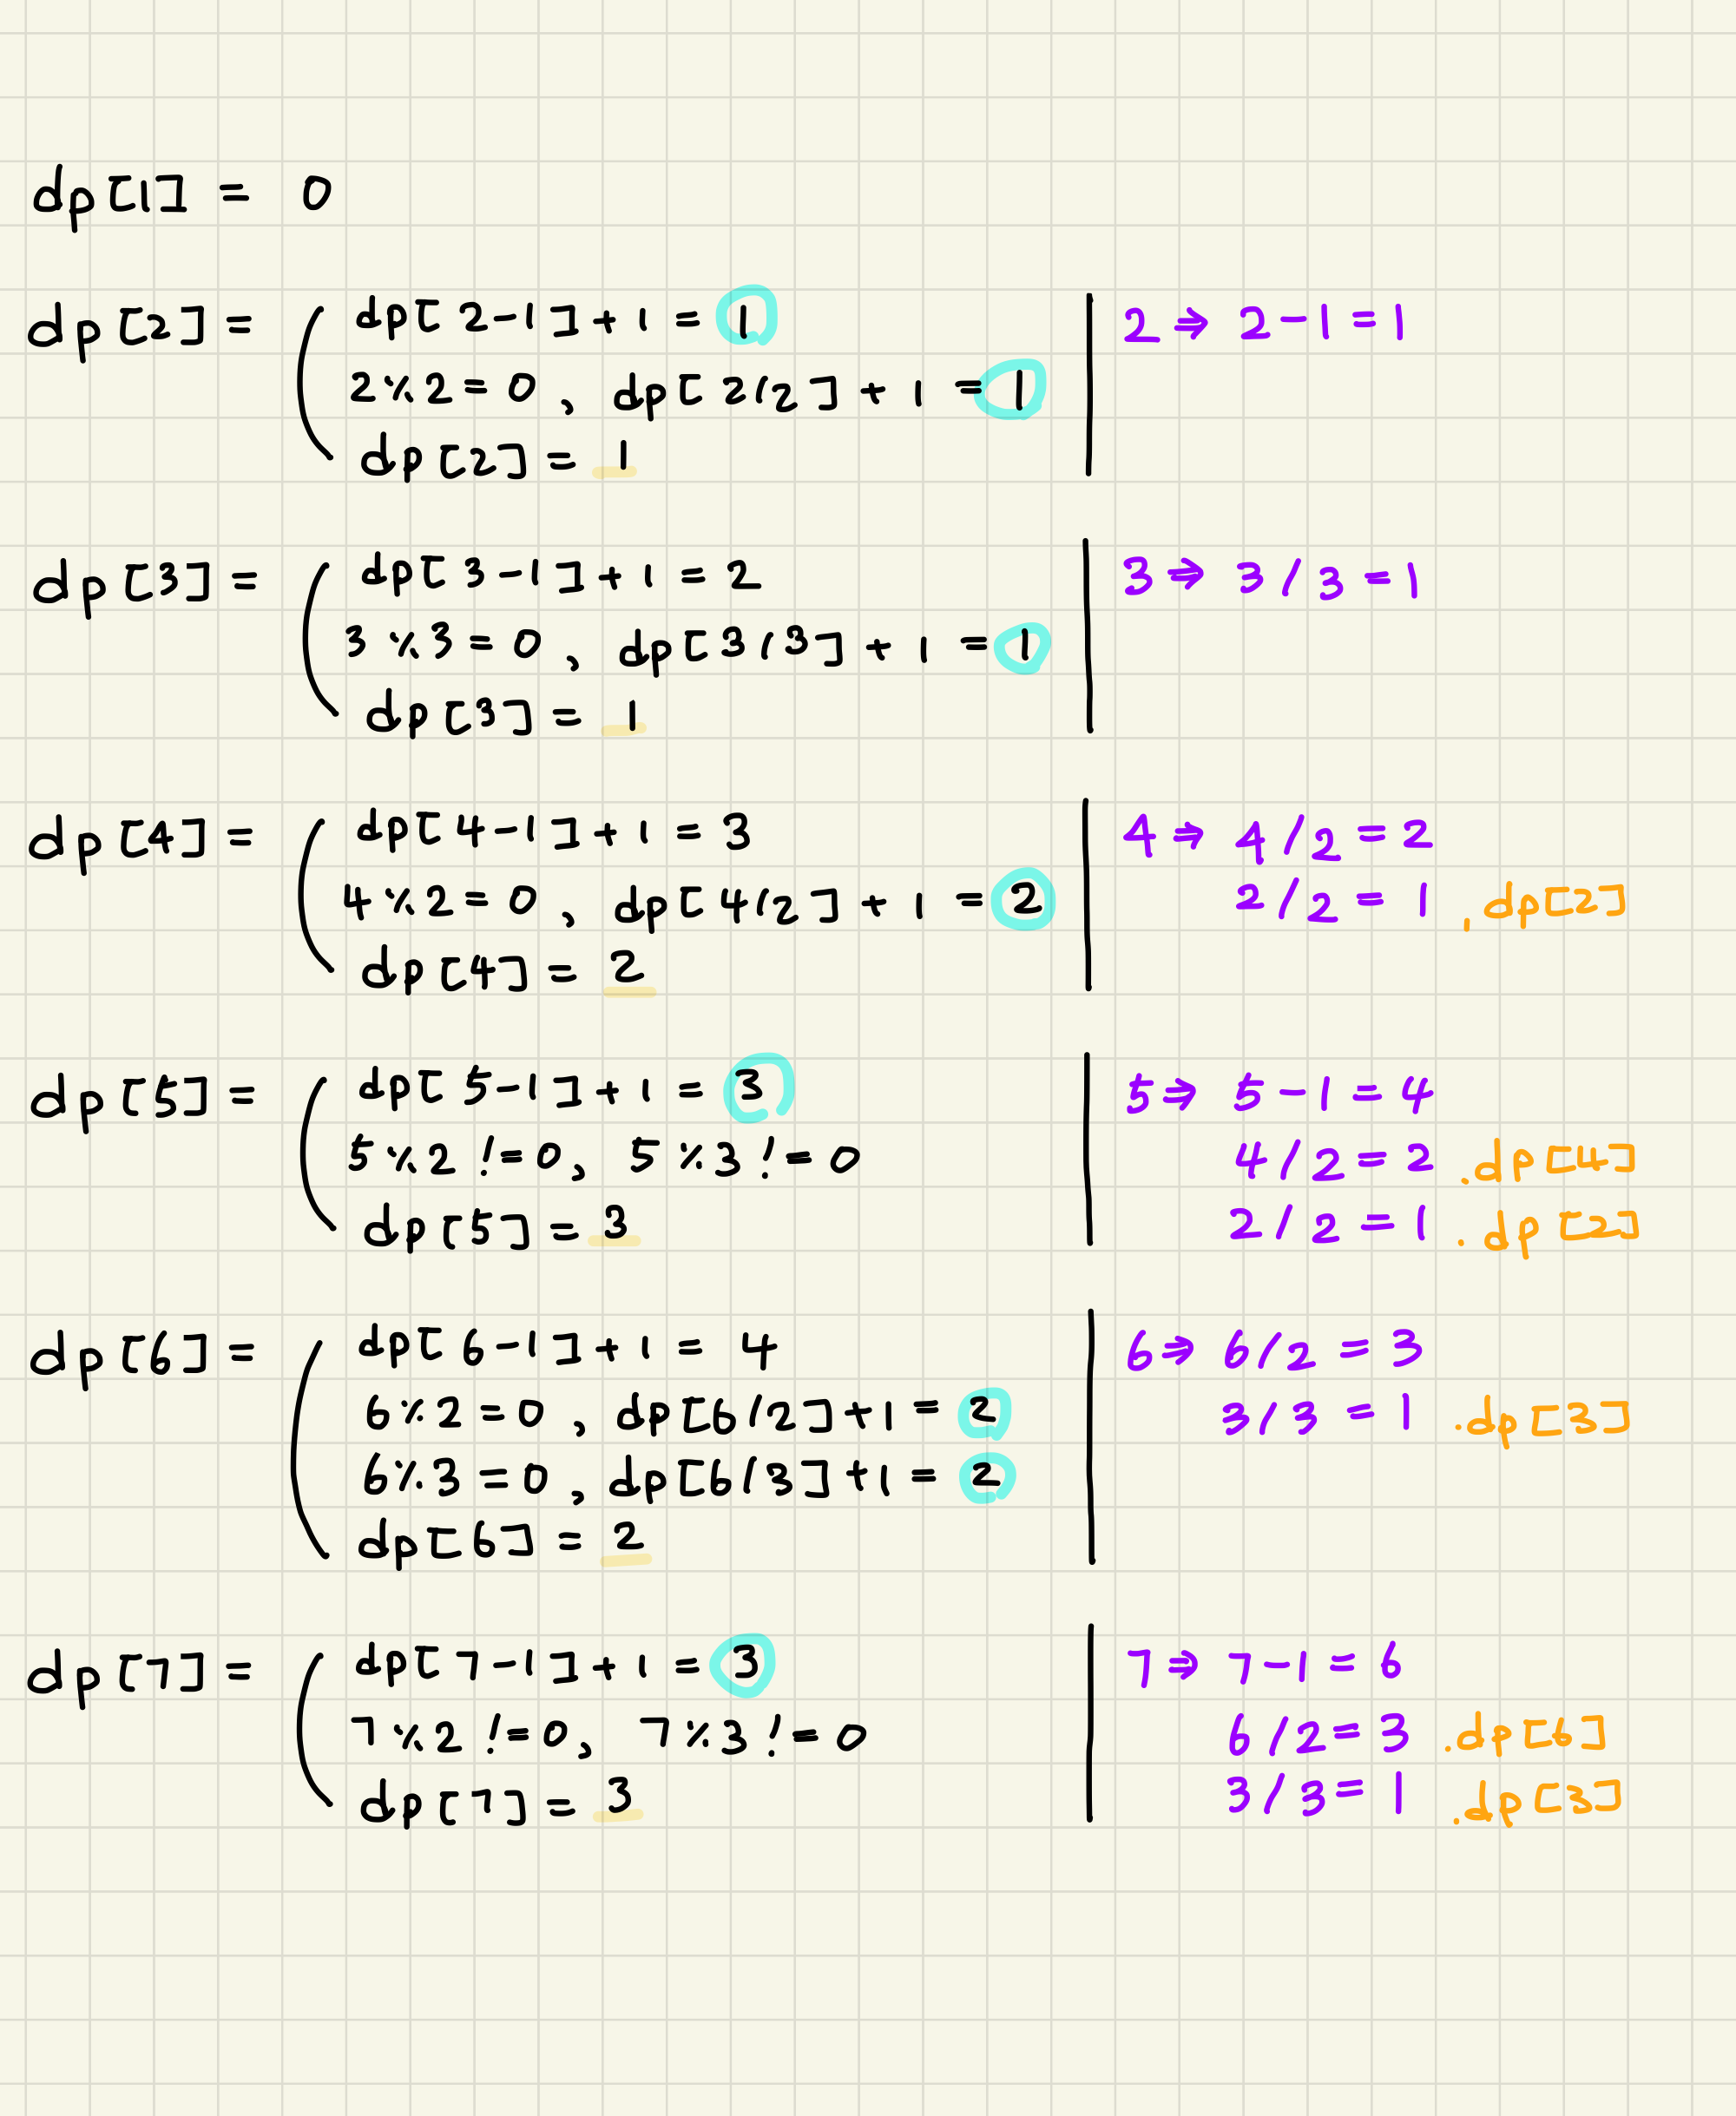 dp[1] = 0
dp[2] = dp[2-1]+1 = 1
2%2=0, dp[2/2]+1 = 1
dp[2] = 1
2 ⇒ 2-1=1
dp[3] = dp[3-1]+1 = 2
3%3=0, dp[3/3]+1 = 1
dp[3] = 1
3 ⇒ 3/3=1
dp[4] = dp[4-1]+1 = 3
4%2=0, dp[4/2]+1 = 2
dp[4] = 2
4 ⇒ 4/2=2
2/2=1 . dp[2]
dp[5] = dp[5-1]+1 = 3
5%2!=0, 5%3!=0
dp[5] = 3
5 ⇒ 5-1=4
4/2=2 .dp[4]
2/2=1 . dp[2]
dp[6] = dp[6-1]+1 = 4
6%2=0, dp[6/2]+1 = 2
6%3=0, dp[6/3]+1 = 2
dp[6] = 2
6 ⇒ 6/2=3
3/3=1 .dp[3]
dp[7] = dp[7-1]+1 = 3
7%2!=0, 7%3!=0
dp[7] = 3
7 ⇒ 7-1=6
6/2=3 .dp[6]
3/3=1 .dp[3]